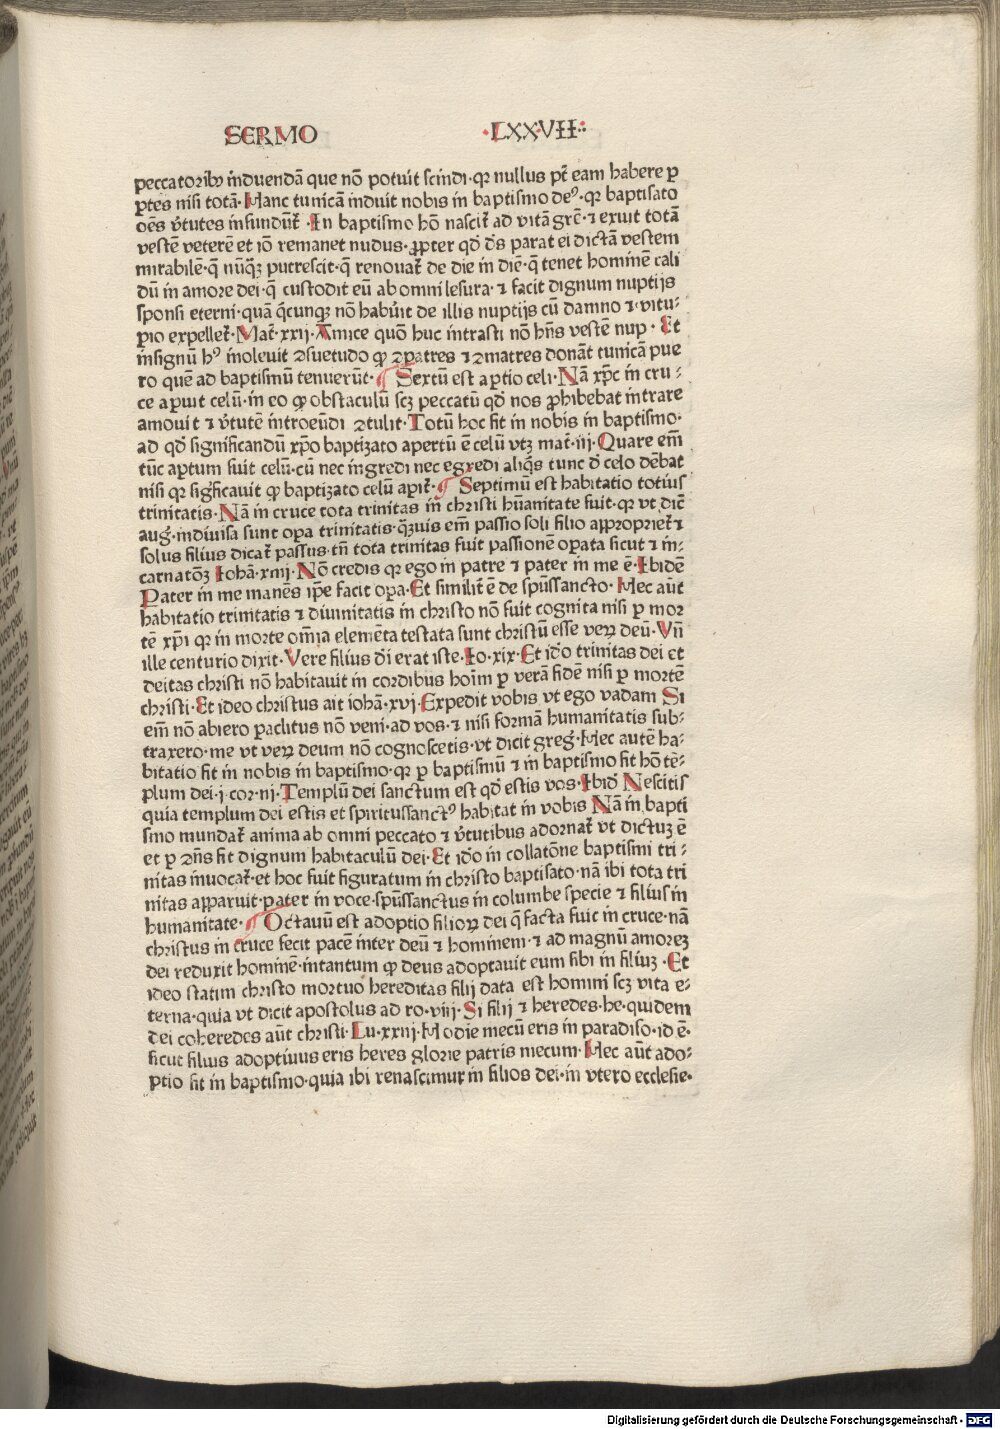 SERMO ·LXXVII:·
peccatoribꝰ induendā que nō potuit scindi·qꝛ nullus pt̄ eam habere ꝑ
ꝑtes nisi totā·Hanc tunicā induit nobis in baptismo deꝰ·qꝛ baptisato
oēs v̄tutes infundūt᷑·In baptismo hō nascit᷑ ad vitā grē·⁊ exuit totā
vestē veterē et iō remanet nudus·ꝓpter qd̄ ds̄ parat ei dictā vestem
mirabilē·q̄ nūq̄ꝫ putrescit·q̄ renouat᷑ de die in diē·q̄ tenet hominē cali
dū in amore dei·q̄ custodit eū ab omni lesura·⁊ facit dignum nuptijs
sponsi eterni·quā q̄cunqꝫ nō habūit de illis nuptijs cū damno ⁊·vitu⸗
ꝑio expellet᷑·Mat᷑·xxij·Amice quō huc intrasti nō hn̄s vestē nup·Et
insignū hꝰ inoleuit ꝯsuetudo ꝙ ꝯpatres ⁊ ꝯmatres donāt tunicā pue
ro quē ad baptismū tenuerūt·¶ Sextū est aꝑtio celi·Nā xp̄c in cru⸗
ce aꝑuit celū·in eo ꝙ obstaculū scꝫ peccatū qd̄ nos ꝓhibebat intrare
amouit ⁊ v̄tutē introeūdi ꝯtulit·Totū hoc fit in nobis in baptismo·
ad qd̄ significandū xp̄o baptizato apertū ē celū vtꝫ mat᷑·iij·Quare em̄
tūc aꝑtum fuit celū·cū nec ingredi nec egredi aliq̄s tunc d̄ celo dēbat
nisi qꝛ siḡficauit ꝙ baptizato celū aꝑit᷑·¶ Septimū est habitatio totius
trinitatis·Nā in cruce tota trinitas in christi hūanitate fuit·ꝙ vt dic̄
aug᷑·indiuisa sunt oꝑa trinitatis·q̄ꝫuis em̄ passio soli filio appropriet᷑ ⁊
solus filius dicat᷑ passus·tn̄ tota trinitas fuit passionē oꝑata sicut ⁊ in⸗
carnatōꝫ Iohā·xiiij·Nō credis qꝛ ego in patre ⁊ pater in me ē·Ibidē
Pater in me manēs ip̄e facit oꝑa·Et similit᷑ ē de spūssancto·Hec aūt
habitatio trinitatis ⁊ diuinitatis in christo nō fuit cognita nisi ꝑ mor
tē xp̄i qꝛ in morte om̄ia elemēta testata sunt christū esse veꝝ deū·Vn̄
ille centurio dixit·Vere filius dī erat iste·Io·xix·Et id̄o trinitas dei et
deitas christi nō habitauit in cordibus hoīm ꝑ verā fidē nisi ꝑ mortē
christi·Et ideo christus ait iohā·xvj·Expedit vobis vt ego vadam Si
em̄ nō abiero paclitus nō veni·ad vos·⁊ nisi formā humanitatis sub⸗
traxero·me vt veꝝ deum nō cognoscetis·vt dicit greg᷑·Hec autē ha⸗
bitatio fit in nobis in baptismo·qꝛ ꝑ baptismū ⁊ in baptismo fit hō tē⸗
plum dei·j·cor·iij·Templū dei sanctum est qd̄ estis vos·Ibid̄ Nescitis
quia templum dei estis et spiritussanctꝰ habitat in vobis Nā in bapti
smo mundat᷑ anima ab omni peccato ⁊ v̄tutibus adornat᷑ vt dictuꝫ ē
et ꝑ ꝯn̄s fit dignum habitaculū dei·Et id̄o in collatōne baptismi tri⸗
nitas inuocat᷑·et hoc fuit figuratum in christo baptisato·nā ibi tota tri
nitas apparuit·pater in voce·spūssanctus in columbe specie ⁊ filius in
humanitate·¶ Octauū est adoptio filioꝝ dei q̄ facta fuit in cruce·nā
christus in cruce fecit pacē inter deū ⁊ hominem·⁊ ad magnū amoreꝫ
dei reduxit hominē·intantum ꝙ deus adoptauit eum sibi in filiuꝫ·Et
ideo statim christo mortuo hereditas filij data est homini scꝫ vita e⸗
terna·quia vt dicit apostolus ad ro·viij·Si filij ⁊ heredes·he·quidem
dei coheredes aūt christi·Lu·xxiij·Hodie mecū eris in paradiso·id ē·
sicut filius adoptiuus eris heres glorie patris mecum·Hec aūt ado⸗
ptio fit in baptismo·quia ibi renascimur in filios dei·in vtero ecclesie·
Digitalisierung gefördert durch die Deutsche Forschungsgemeinschaft · DFG